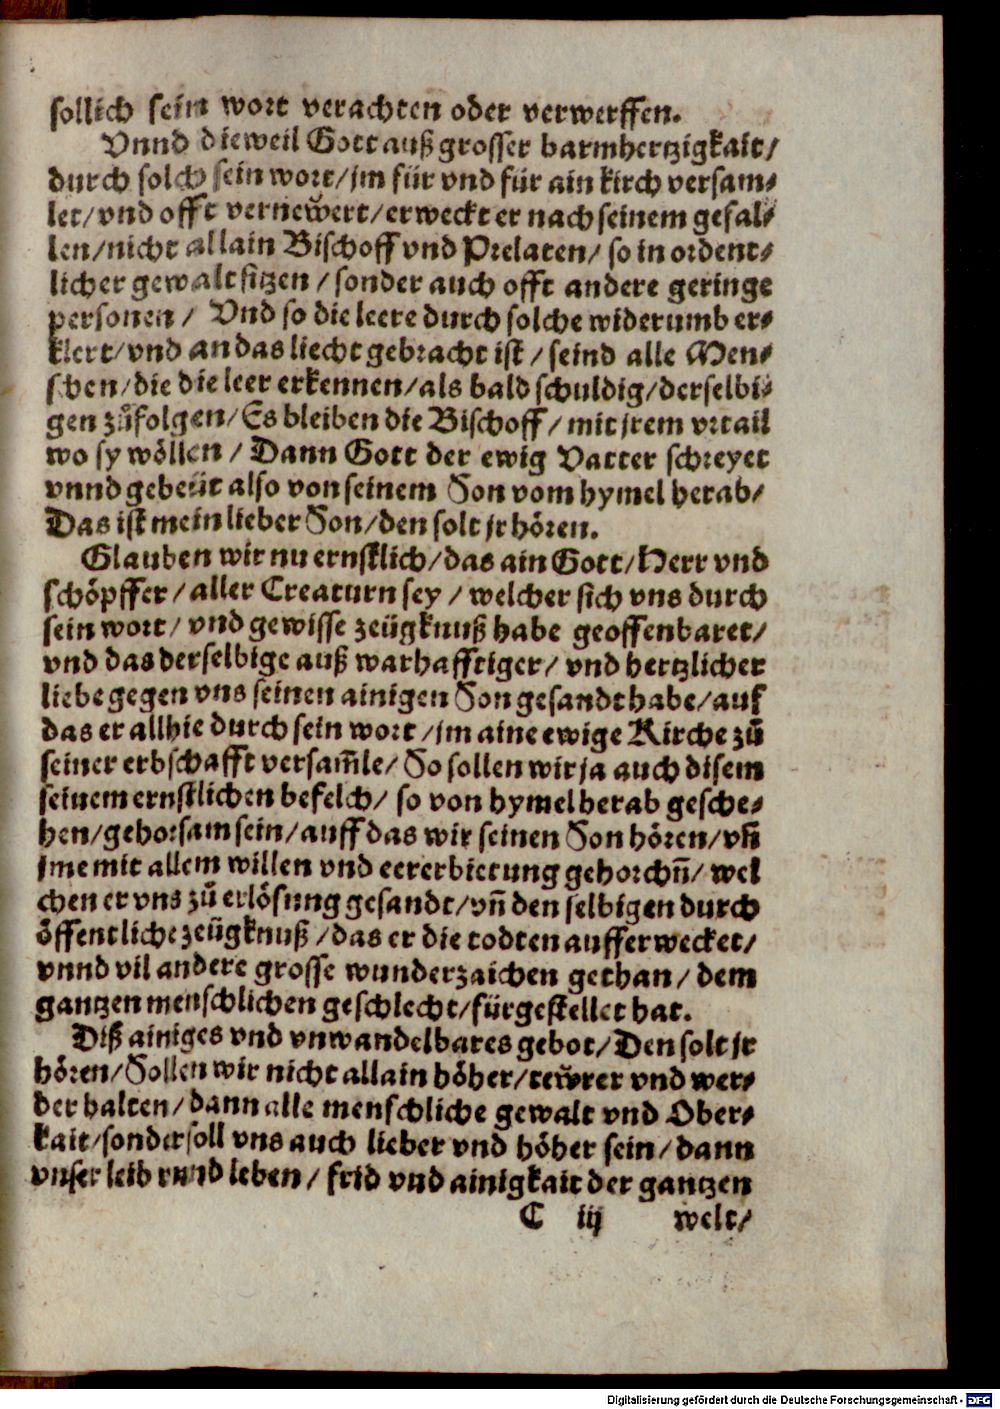 sollich sein wort verachten oder verwerffen.
Vnnd dieweil Gott auß grosser barmhertzigkait/
durch solch sein wort/jm für vnd für ain kirch versam⸗
let/vnd offt vernewͤert/erweckt er nach seinem gefal⸗
len/nicht allain Bischoff vnd Prelaten/ so in ordent⸗
licher gewalt sitzen / sonder auch offt andere geringe
personen / Vnd so die leere durch solche widerumb er⸗
klert/vnd an das liecht gebracht ist / seind alle Men⸗
schen/die die leer erkennen/als bald schuldig/derselbi⸗
gen zůfolgen/Es bleiben die Bischoff / mit jrem vrtail
wo sy wöllen / Dann Gott der ewig Vatter schreyet
vnnd gebeüt also von seinem Son vom hymel herab/
Das ist mein lieber Son/den solt jr hören.
Glauben wir nu ernstlich/das ain Gott/Herr vnd
schöpffer / aller Creaturn sey / welcher sich vns durch
sein wort/ vnd gewisse zeügknuß habe geoffenbaret/
vnd das derselbige auß warhafftiger/ vnd hertzlicher
liebe gegen vns seinen ainigen Son gesandt habe/auf
das er allhie durch sein wort /jm aine ewige Kirche zů
seiner erbschafft versam̄le/ So sollen wir ja auch disem
seinem ernstlichen befelch/ so von hymel herab gesche⸗
hen/gehorsam sein/auff das wir seinen Son hören/vn̄
jme mit allem willen vnd eererbietung gehorchn̄/ wel
chen er vns zů erlösung gesandt/vn̄ den selbigen durch
öffentliche zeügknuß /das er die todten aufferwecket/
vnnd vil andere grosse wunderzaichen gethan/ dem
gantzen menschlichen geschlecht/fürgestellet hat.
Diß ainiges vnd vnwandelbares gebot/Den solt jr
hören/Sollen wir nicht allain höher/tewͤrer vnd wer⸗
der halten/dann alle menschliche gewalt vnd Ober⸗
kait/sonder soll vns auch lieber vnd höher sein/dann
vnser leib vnnd leben / frid vnd ainigkait der gantzen
C iij welt/
Digitalisierung gefördert durch die Deutsche Forschungsgemeinschaft - DFG